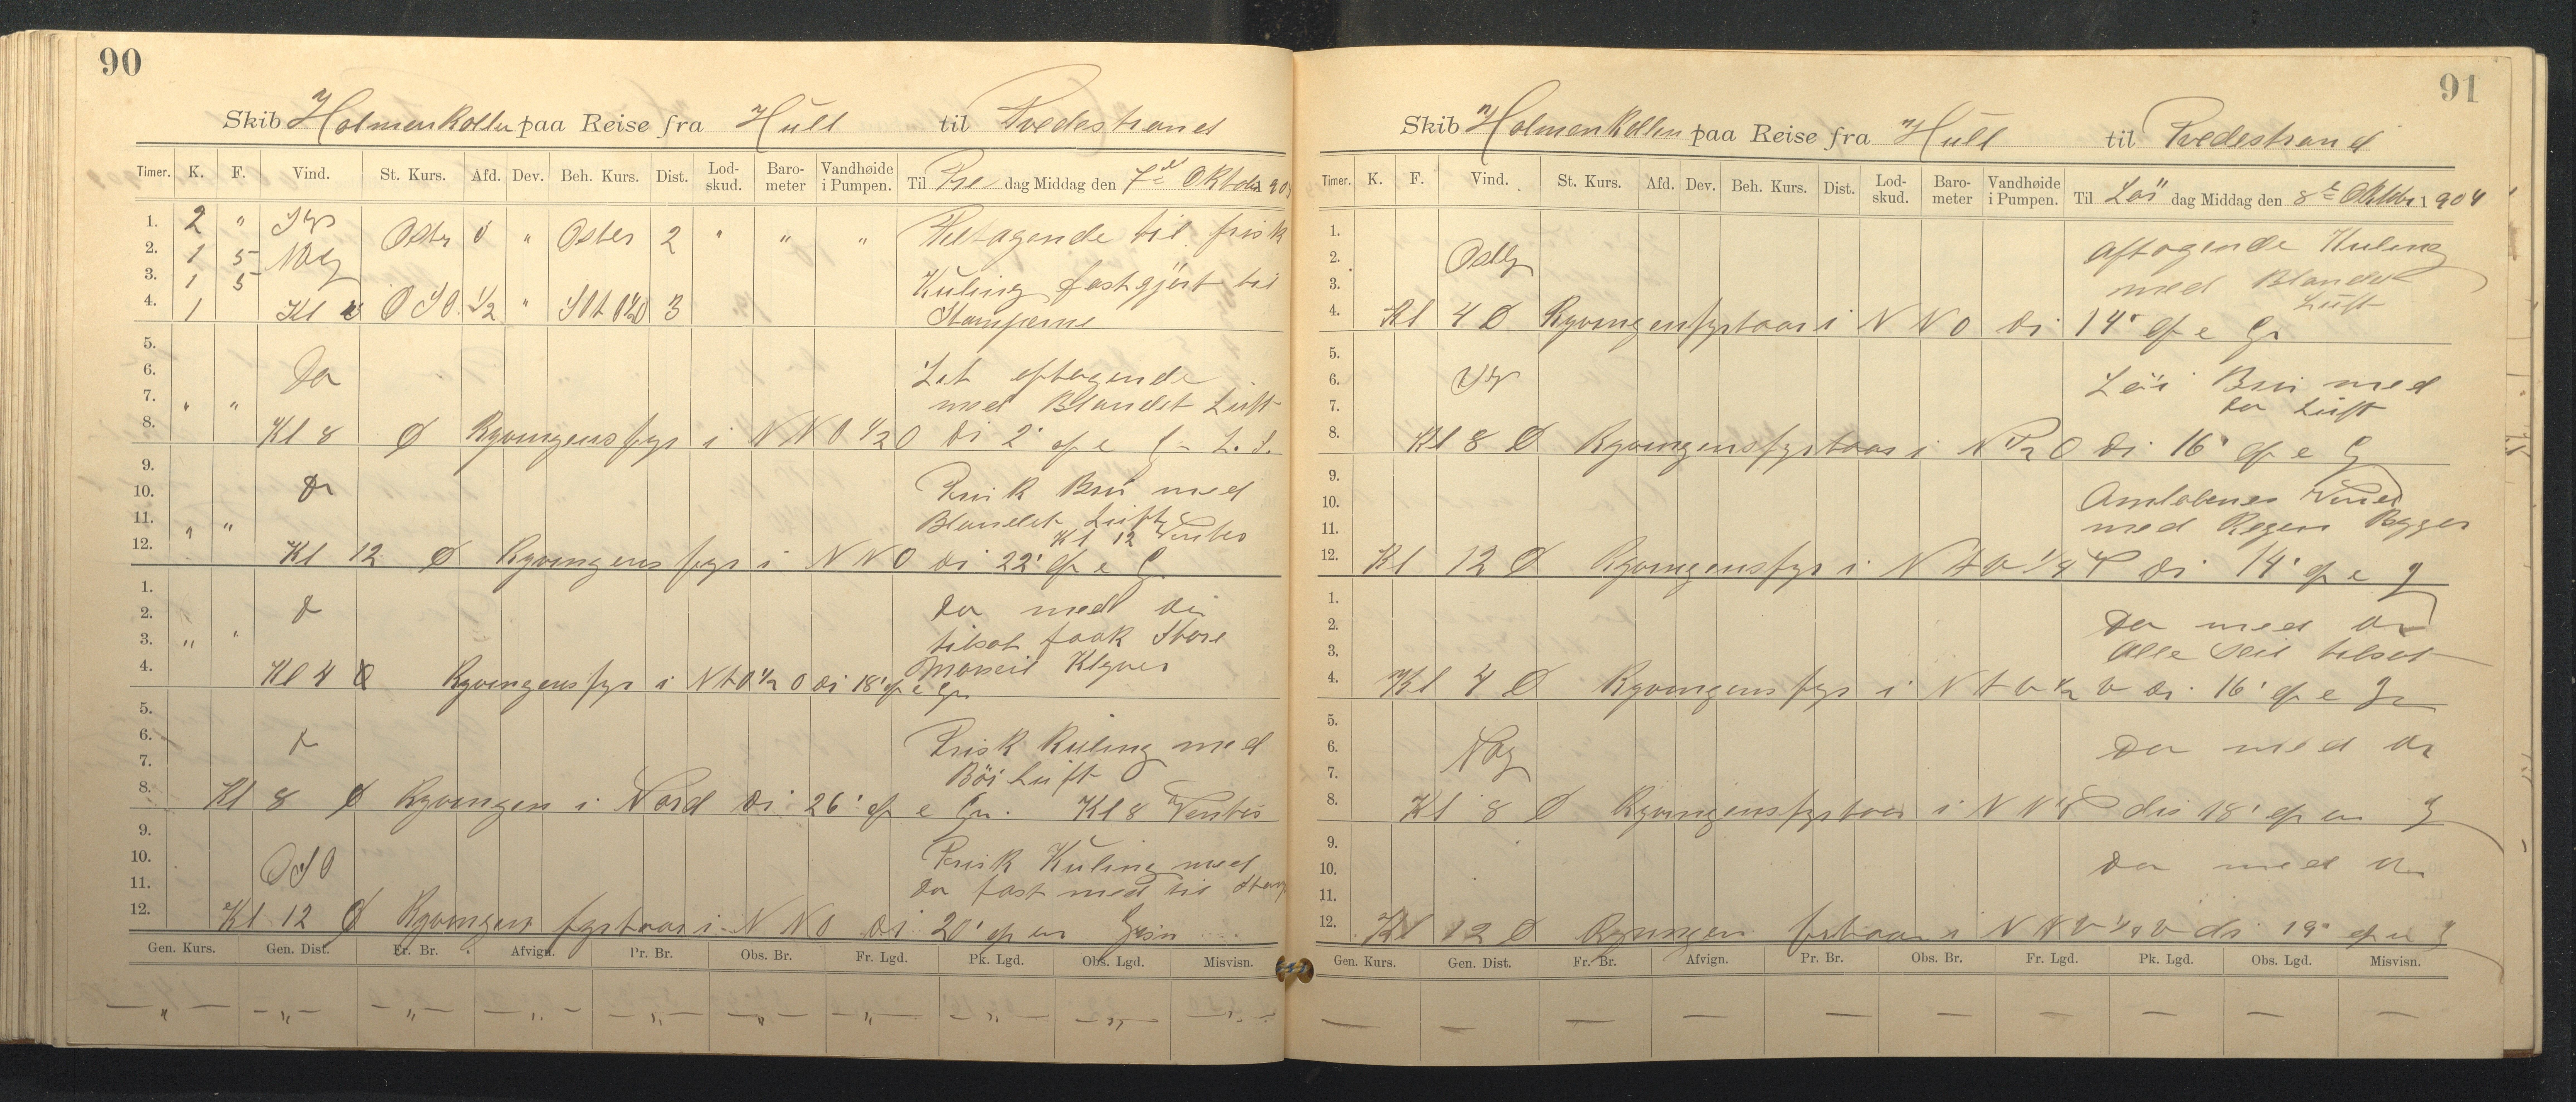 90
Skib Holmenkollen paa Reise fra Hull til Tvedestrand
Timer. K. F. Vind. St. Kurs. Afd. Dev. Beh. Kurs. Dist. Lod-skud. Baro-meter Vandhøide i Pumpen. Til Fre dag Middag den 7de Oktober 1904
1. 2 "
2. 1 5 Oster 0 " Oster 2 " " " Tiltagende til frisk
3. 1 5 Kuling fastgjørt til
4. 1 Kl 4 OSO 1/2 " 3 Stumperne
5.
6. Do Let aftagende
7. " " med Blandet Luft
8. Kl 8 Ø Ryvingens fyr i NNO 1/2 O Di 2' af e G
9.
10. Do Frisk Bris med
11. " " Blandet Luft
Kl 12 Venter
12. Kl 12 Ø Ryvingens fyr i NNO Di 22' af e G
1.
2. Do Do med Do
3. " " tilsat fook Store
4. Kl 4 Ø Ryvingens fyr i NtO 1/2 O di 18' af e Gis Klyver
5.
6. Do Frisk Kuling med
7. Böi Luft
8. Kl 8 Ø Ryvingen i Nord Di 26' af e Gis. Kl 8 Venter
9.
10. OSO Frisk Kuling med
11. Do fast med til
12. Kl 12 Ø Ryvingen fyrtaar i NNO Di 20' af en Gisn
Gen. Kurs. Gen. Dist. Fr. Br. Afvign. Pr. Br. Obs. Br. Fr. Lgd. Pk. Lgd. Obs. Lgd. Misvisn.
— " — — " — — " — — " — — " — — " — — " — — " — — " — — " —
91
Skib Holmenkollen paa Reise fra Hull til Tvedestrand
Timer. K. F. Vind. St. Kurs. Afd. Dev. Beh. Kurs. Dist. Lod-skud. Baro-meter Vandhøide i Pumpen. Til Lör dag Middag den 8de Oktober 1904
1.
2. Ostlig Aftagende Kuling
3. med Blandet
Luft
4. Kl 4 Ø Ryvingens fyrtaar i NNO Di 14' af e Gis
5.
6. Lör Bris med
7. Do Luft
8. Kl 8 Ø Ryvingens fyrtaar i N 1/2 O Di 16' af e G
9.
10. Omløbenes Vind
11. med Regen Bygger
12. Kl 12 Ø Ryvingens fyr i Di 14' af e G
1.
2. Do med Do
3. Alle Seil tilsat
4. Kl 4 Ø Ryvingens fyr i NtV 1/2 V Di 16' af e G
5.
6. Do med Do
7.
8. Kl 8 Ø Ryvingens fyrtaar i NNV dis 18' af en G
9.
10. Do med Do
11.
12. Kl 12 Ø Ryvingen i di 19' af e G
Gen. Kurs. Gen. Dist. Fr. Br. Afvign. Pr. Br. Obs. Br. Fr. Lgd. Pk. Lgd. Obs. Lgd. Misvisn.
— — — — — — — — — —